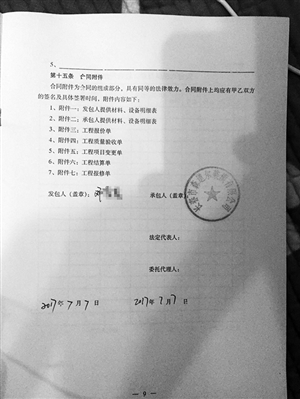 5、
第十五条 合同附件
合同附件为合同的组成部分，具有同等的法律效力。合同附件上均应有甲乙双方
的签名及具体签署时间。附件内容如下：
1、附件一：发包人提供材料、设备明细表
2、附件二：承包人提供材料、设备明细表
3、附件三：工程报价单
4、附件四：工程质量验收单
5、附件五：工程项目变更单
6、附件六：工程结算单
7、附件七：工程报修单
发包人（盖章）： 承包人（盖章）
法定代表人：
委托代理人：
2017年7月7日 2017年7月7日
— 9 —